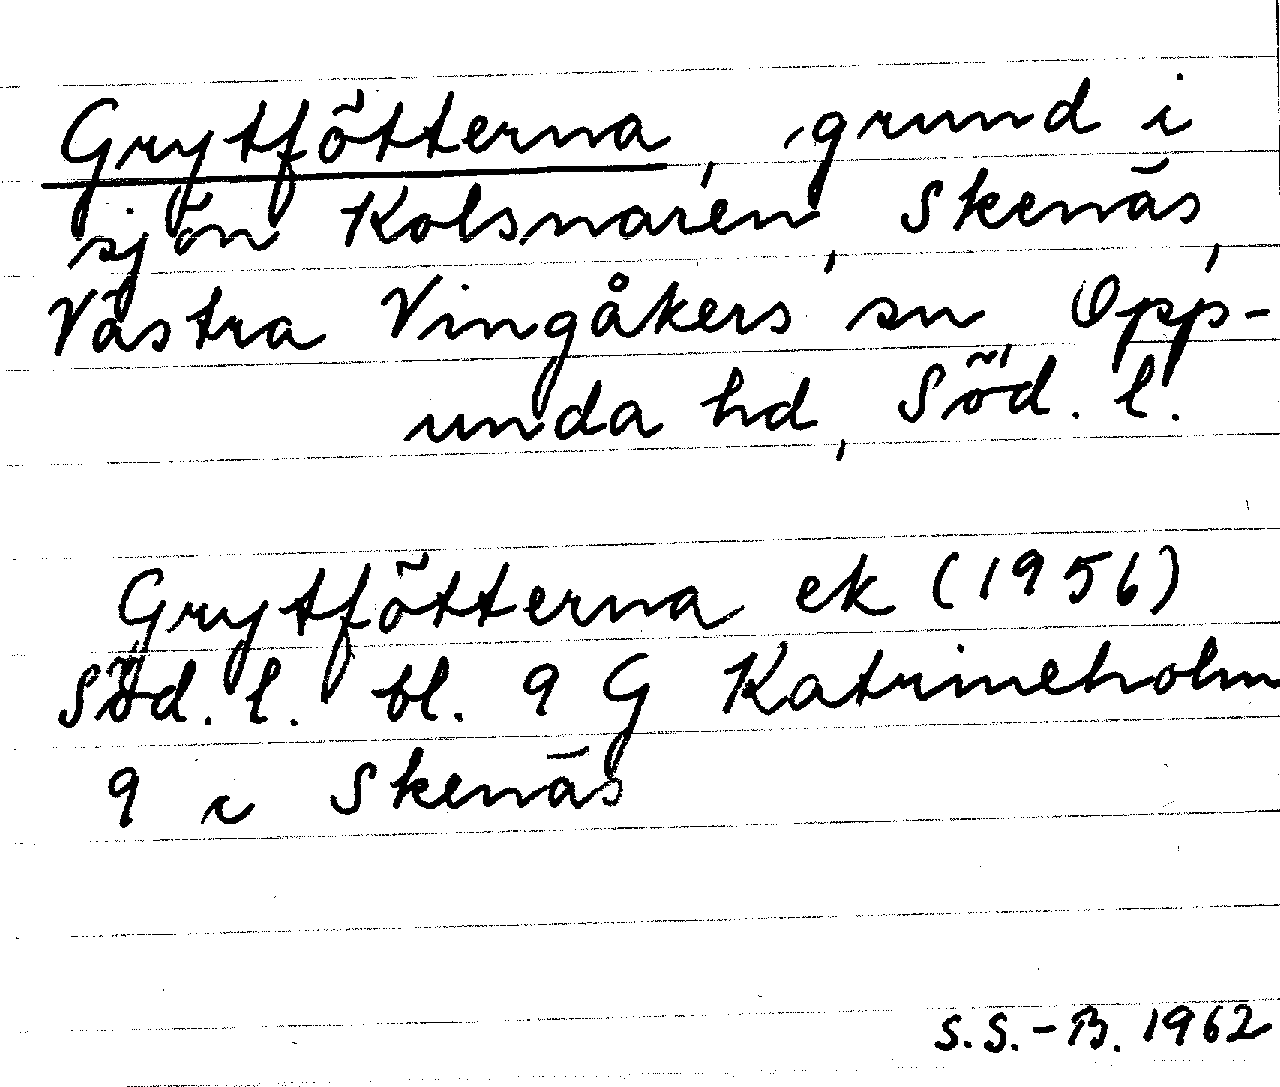 Grytfötterna, grund i
sjön Kolsnaren, Skenäs,
Västra Vingåkers sn, Opp-
unda hd, Söd. l.
Grytfötterna ek (1956)
Söd. l. bl. 9 G Katrineholm
9 c Skenäs
S.S.-B. 1962